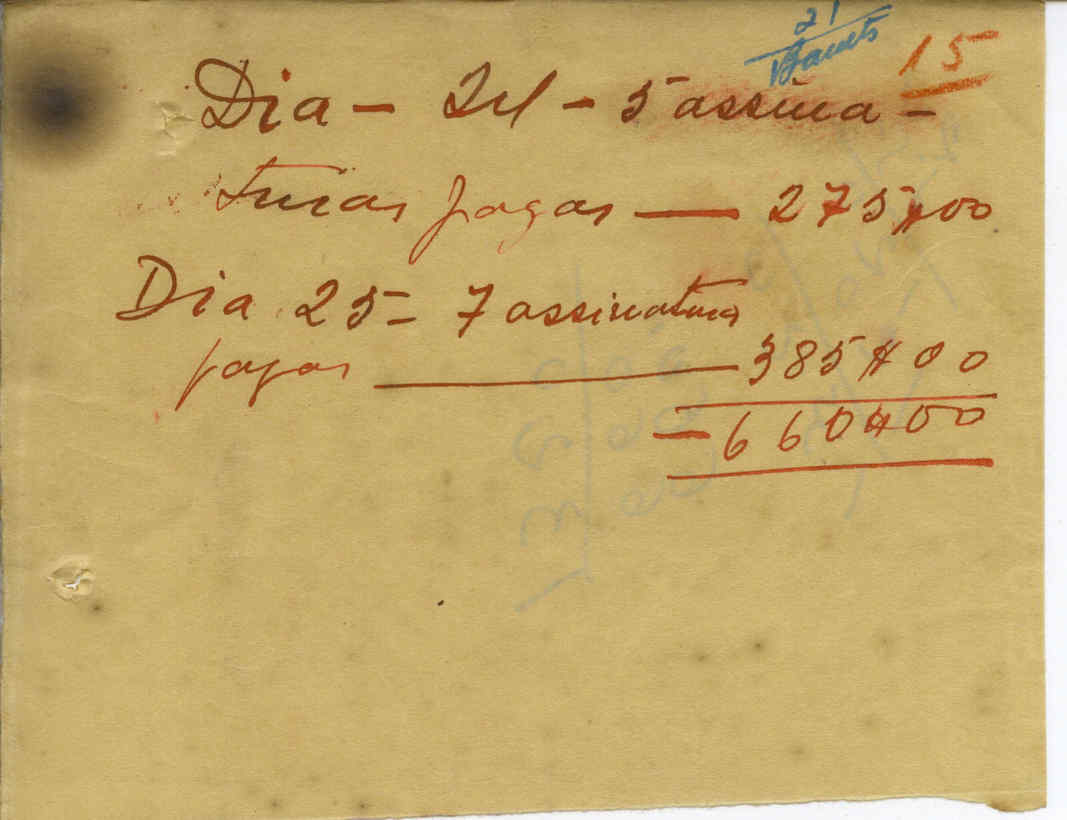 21
15
Dia - 24 - 5 assina -
turas pagas — 275$00
Dia 25 - 7 assinaturas
pagas — 385$00
- 660$00